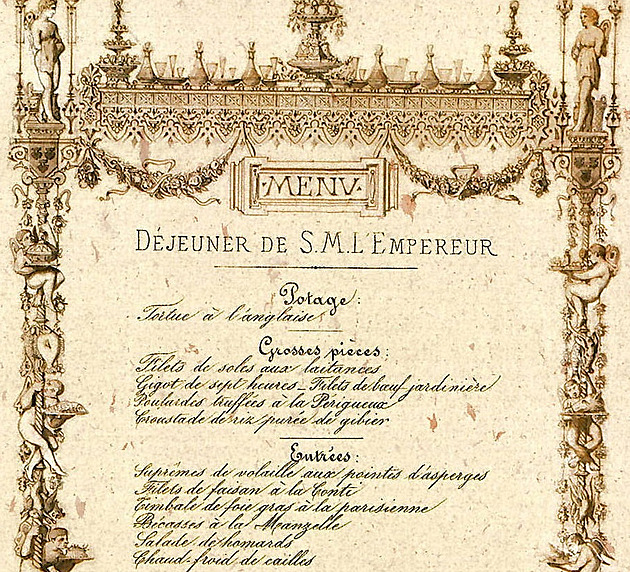 ·MENV·
DÉJEUNER DE S.M.L'EMPEREUR
Potage:
Tortue à l'anglaise
Grosses pièces:
Filets de soles aux laitances
Gigot de sept heures _ Filets de bœuf jardinière
Poulardes truffées à la Périgueux
Croustade de riz purée de gibier
Entrées:
Suprêmes de volaille aux pointes d'asperges
Filets de faisan à la Conti
Timbale de foie gras à la parisienne
Bécasses à la Meanzelle
Salade de homards
Chaud-froid de cailles